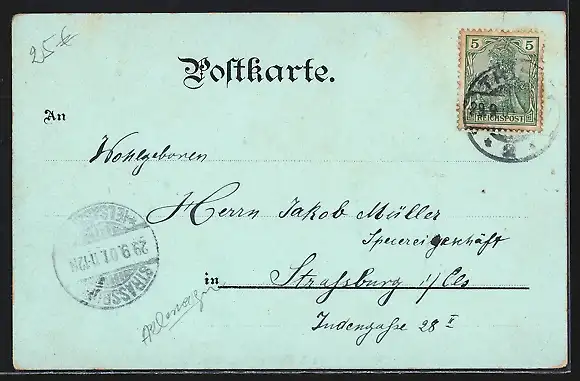 25 €
Postkarte.
5 5
REICHSPOST
29.9
* 2 *
An
Wohlgeboren
Herrn Jakob Müller
Specereigeschäft
in Strassburg i/Els
Judengasse 28 II
STRASSBURG
29.9.01.11-12N